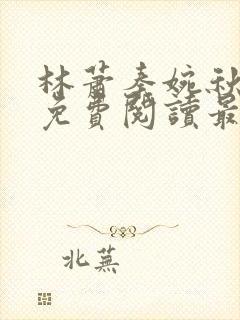 林蕭秦婉秋
免費閱讀最
北蕪